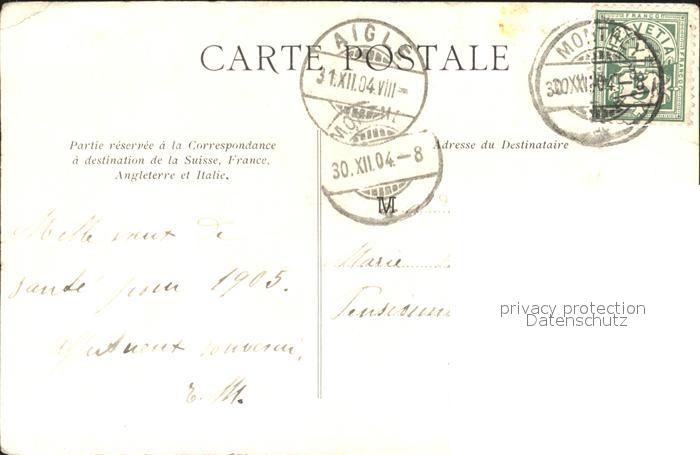 CARTE POSTALE
AIGLE
31.XII.04.VIII-
MON
30.XII.04.-8
MONTR
30.XII.04.-8
FRANCO
HELVETIA
Partie réservée à la Correspondance
à destination de la Suisse, France,
Angleterre et Italie.
Adresse du Destinataire
M
Mille vœux de
santé pour 1905.
Affectueux souvenir,
E. M.
Marie
Pensionn
privacy protection
Datenschutz